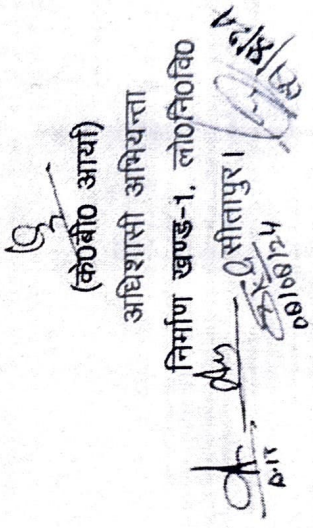 (के0बी0 आर्या)
अधिशासी अभियन्ता
निर्माण खण्ड-1, लो0नि0वि0
सीतापुर।
08/08/24